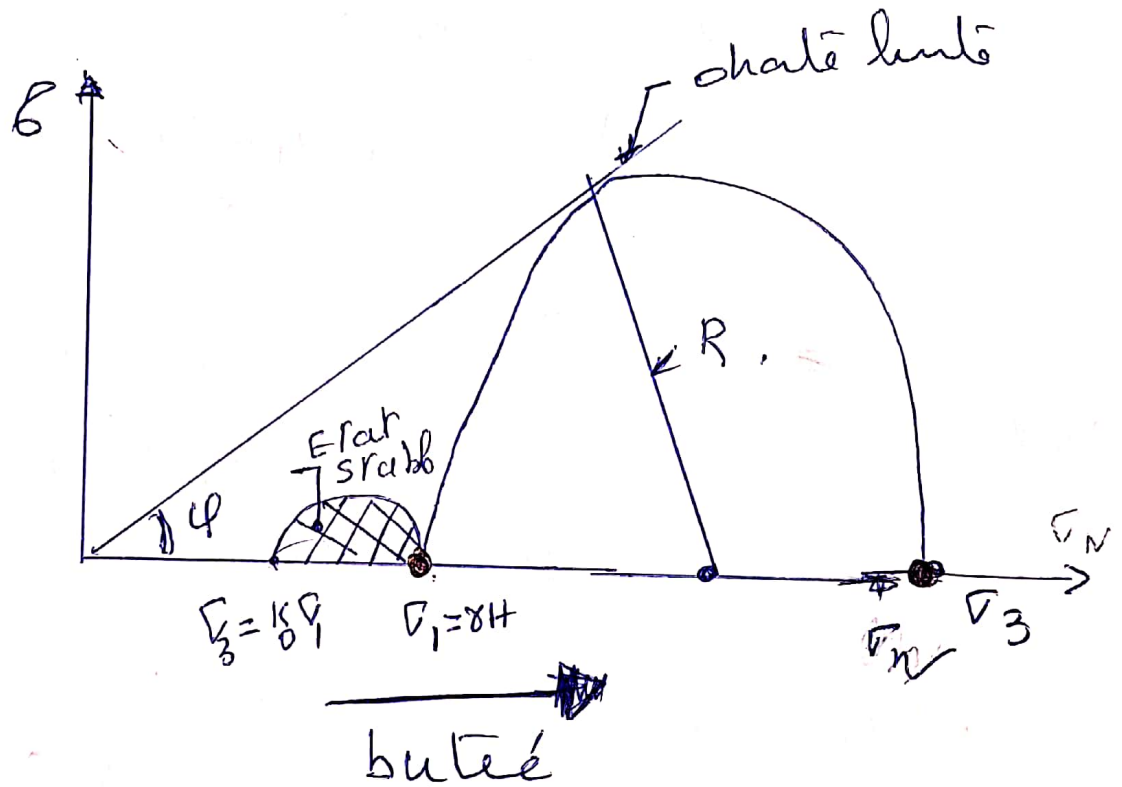 droite limite
R.
Etat
stable
φ
σN
σ3 = K0 σ1
σ1 = γH
σ3
butée